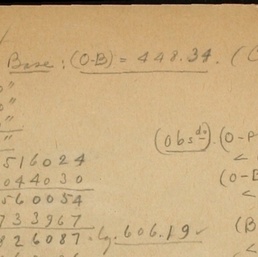 Base: (O-B) = 448.34. (
(Obsd). (O-P
516024
044030
560054
(O-B
733967
826087 = lg. 606.19
(B